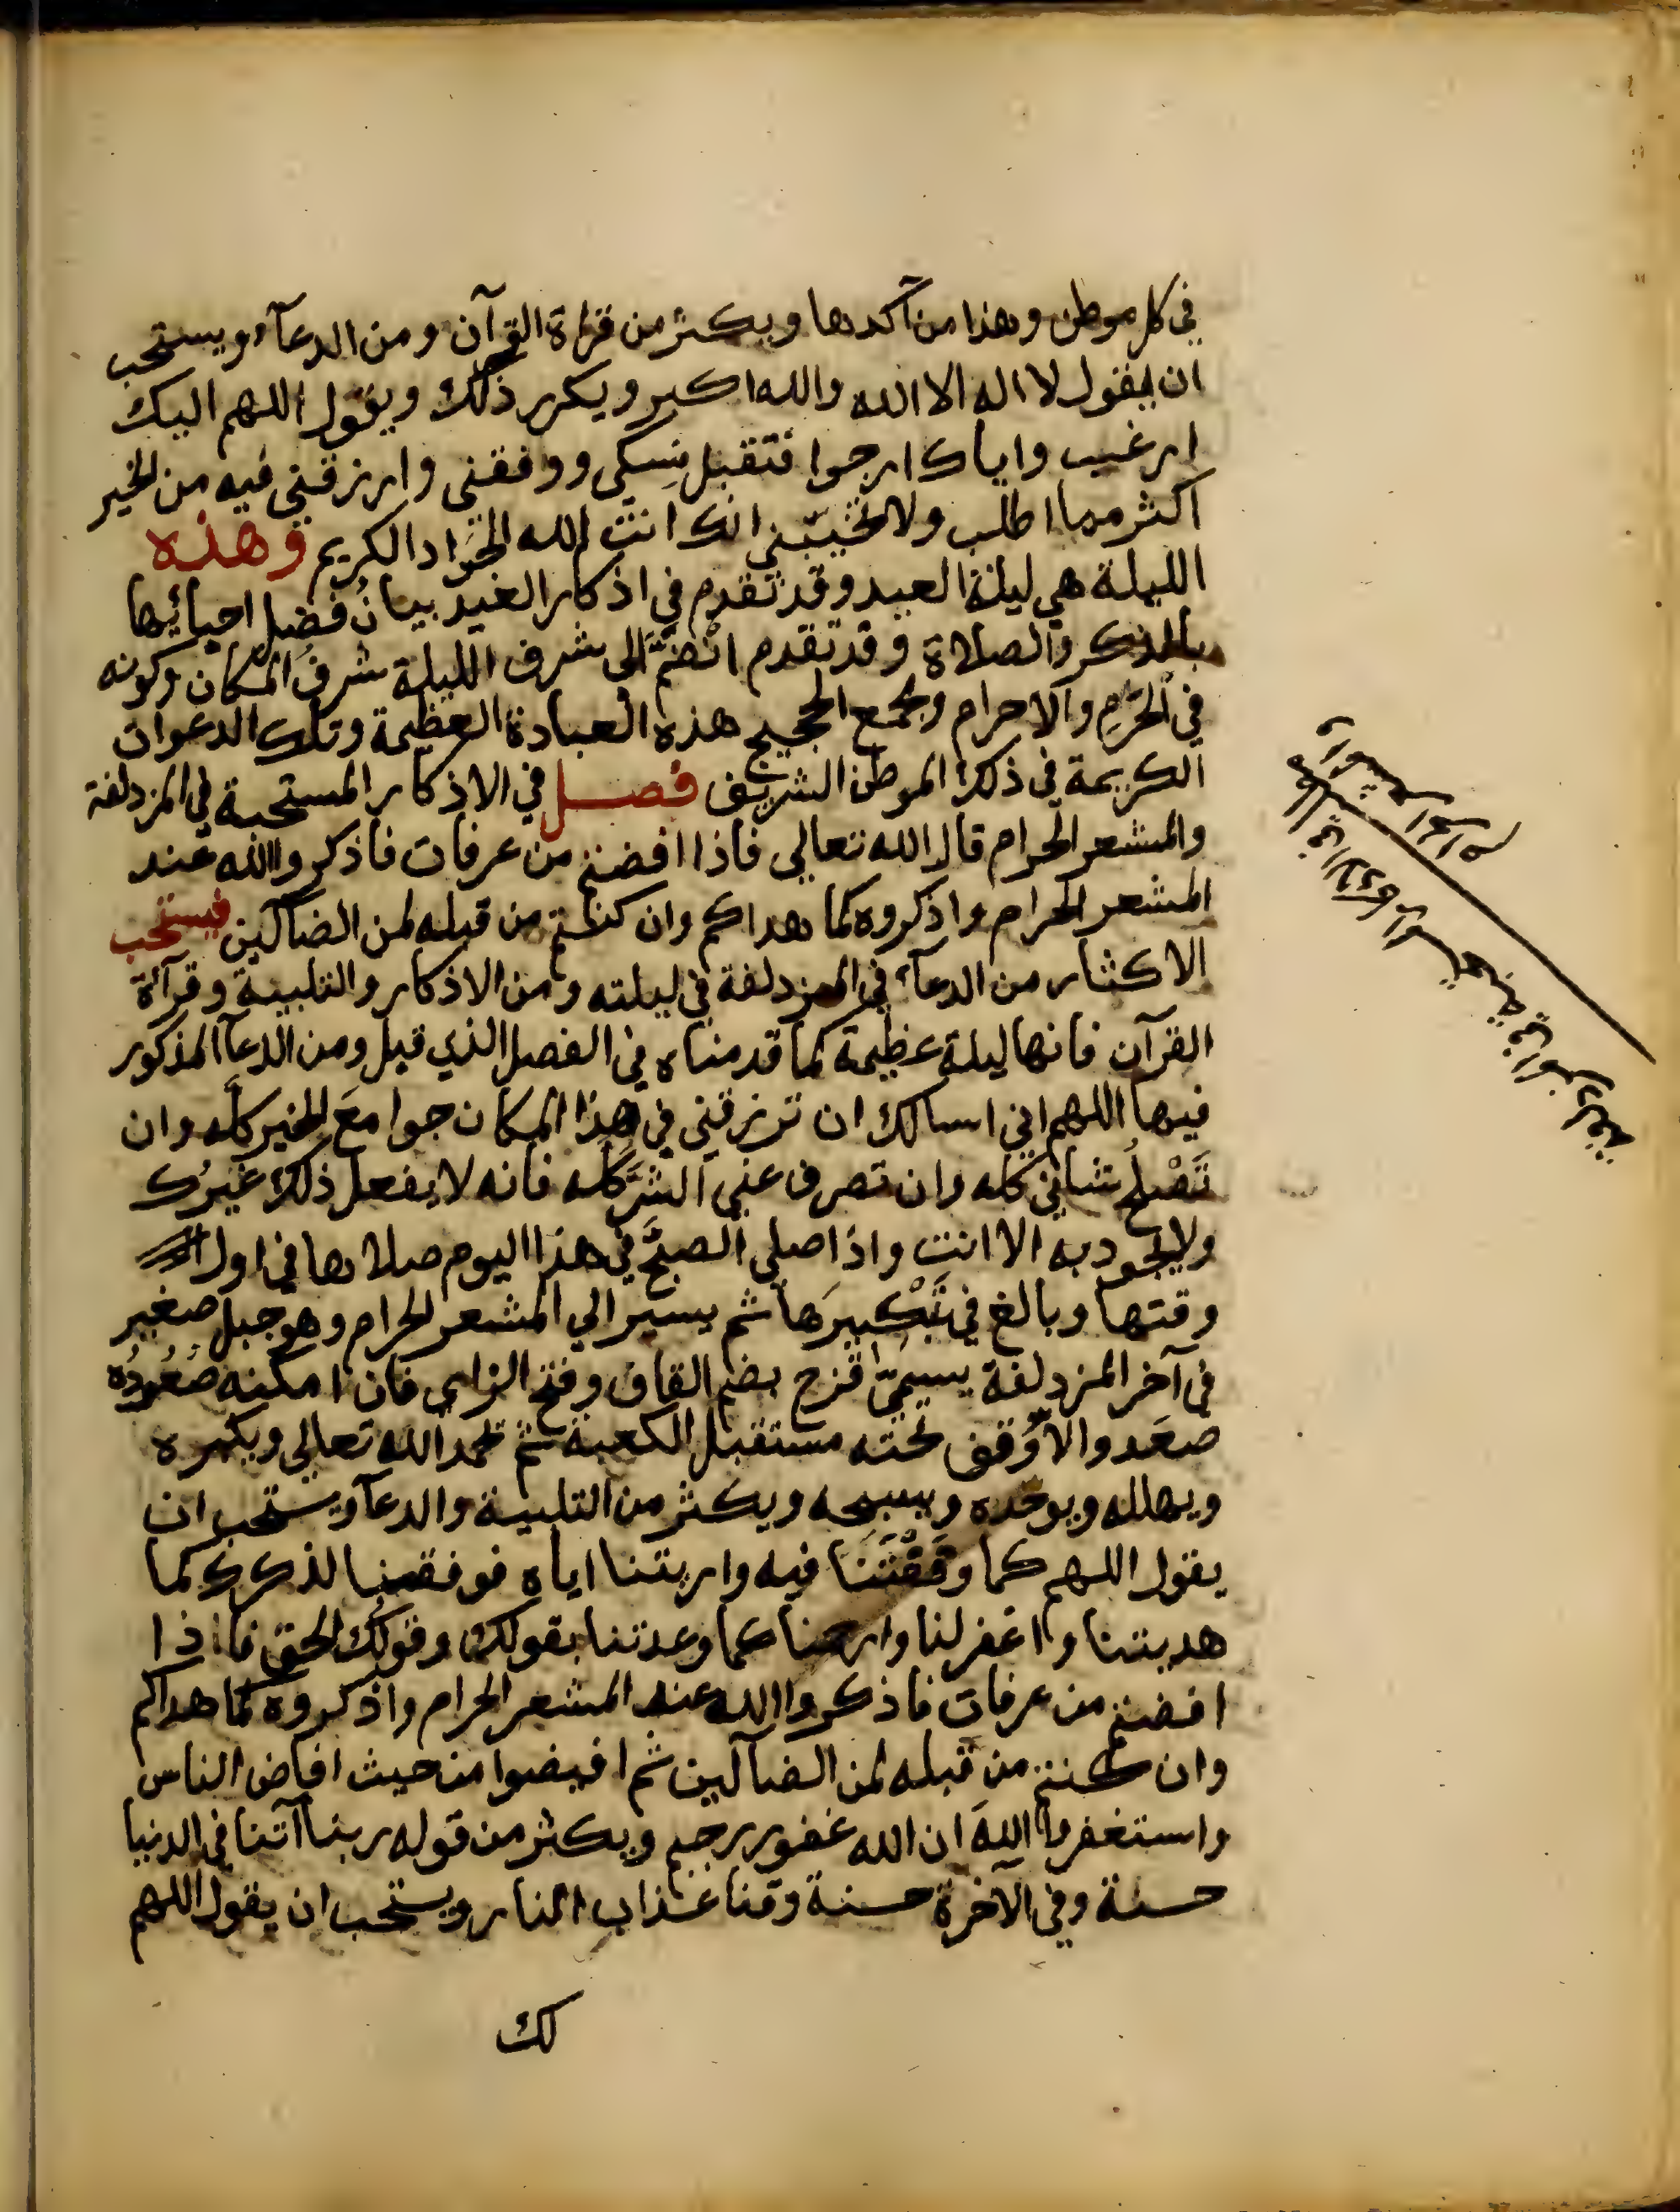 في كل موطن وهذا من آكدها ويكثر من قراة القرآن ومن الدعآء ويستحب
ان يقول لا اله الا الله والله اكبر ويكرر ذلك ويقول اللهم اليك
ارغب واياك ارجوا فتقبل نسكي ووفقني وارزقني فيه من الخير
اكثر مما اطلب ولا تخيّبني انك انت الله الجَوَاد الكريم وهذه
الليلة هي ليلة العيد وقد تقدم في اذكار العيد بيانُ فضل احيائها
بالذكر والصلاة وقد تقدم انْضَمَّ الى شرف الليلة شرفُ المكان وكونه
في الحَرَمِ والاحرام ومجمع الحجيج هذه العبادة العظيمة وتلك الدعوات
الكريمة في ذلك الموطن الشريف فصل في الاذكار المستحبة في المزدلفة
والمشعر الحرام قال الله تعالي فاذا افضتم من عرفات فاذكروا الله عند
المشعر الحرام واذكروه كما هداكم وان كنتم من قبله لمن الضآلين فيستحب
الاكثار من الدعآء في المزدلفة في ليلته ومن الاذكار والتلبية وقرآئة
القرآن فانها ليلة عظيمة كما قدمناه في الفصل الذي قبل ومن الدعآ المذكور
فيها اللهم اني اسالك ان ترزقني في هذا المكان جوامعَ الخير كلَّه وان
تَصْلُحَ شاني كله وان تصرف عني الشرَّ كله فانه لا يفعل ذلك غيرُك
ولا يجود به الا انت واذا صلي الصبحَ في هذا اليوم صلاها في اول
وقتها وبالغ في تَبْكيرَها ثم يسير الي المشعر الحرام وهو جبل صغير
في آخر المزدلفة يسمّيَ قزح بضم القاف وفتح الزاي فان امكنه صُعُودُه
صعَد والا وَقف تحته مستقبل الكعبة ثم يحمد الله تعالي ويكبره
ويهلله ويوحده ويسبحه ويكثر من التلبية والدعآ ويستحب ان
يقول اللهم كما وَقَفْتَنا فيه واريتنا اياه فوفقنا لذكرك كما
هديتنا واغفر لنا وارحمنا كما وعدتنا بقولك وقولُك الحق فاذا
افضتم من عرفات فاذكروا الله عند المشعر الحرام واذكروه كما هداكم
وان كنتم من قبله لمن الضآلين ثم افيضوا من حيث افاض الناس
واستغفروا اللهَ ان الله غفور رحيم ويكثر من قوله ربنا آتنا في الدنيا
حسنة وفي الآخرة حسنة وقنا عذاب النار ويستحب ان يقول اللهم
لك